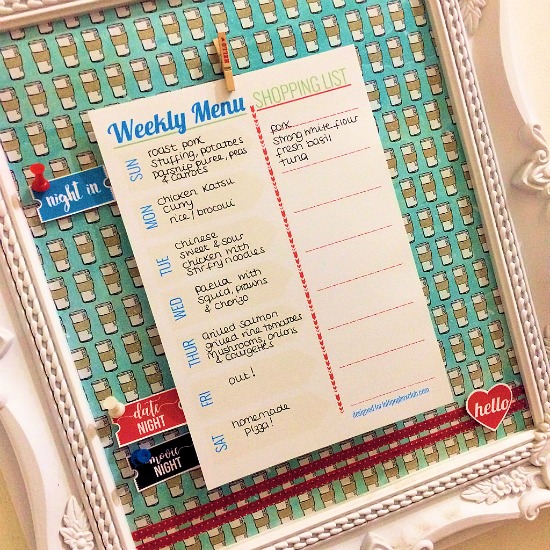 Weekly Menu
SUN
roast pork
stuffing, potatoes
parsnip puree, peas
& carrots
MON
chicken katsu
curry
rice/brocolli
TUE
chinese
sweet & sour
chicken with
stir fry noodles
WED
paella with
squid, prawns
& chorizo
THUR
Grilled salmon
grilled vine tomatoes
mushrooms, onions
& courgettes
FRI
out!
SAT
homemade
pizza!
SHOPPING LIST
pork
strong white flour
fresh basil
tuna
designed by
night in
date
NIGHT
movie
NIGHT
hello